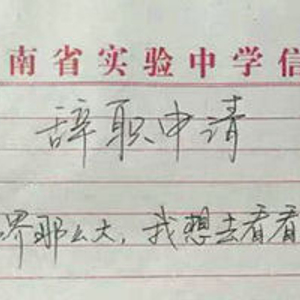 南省实验中学信
辞职申请
界那么大，我想去看看